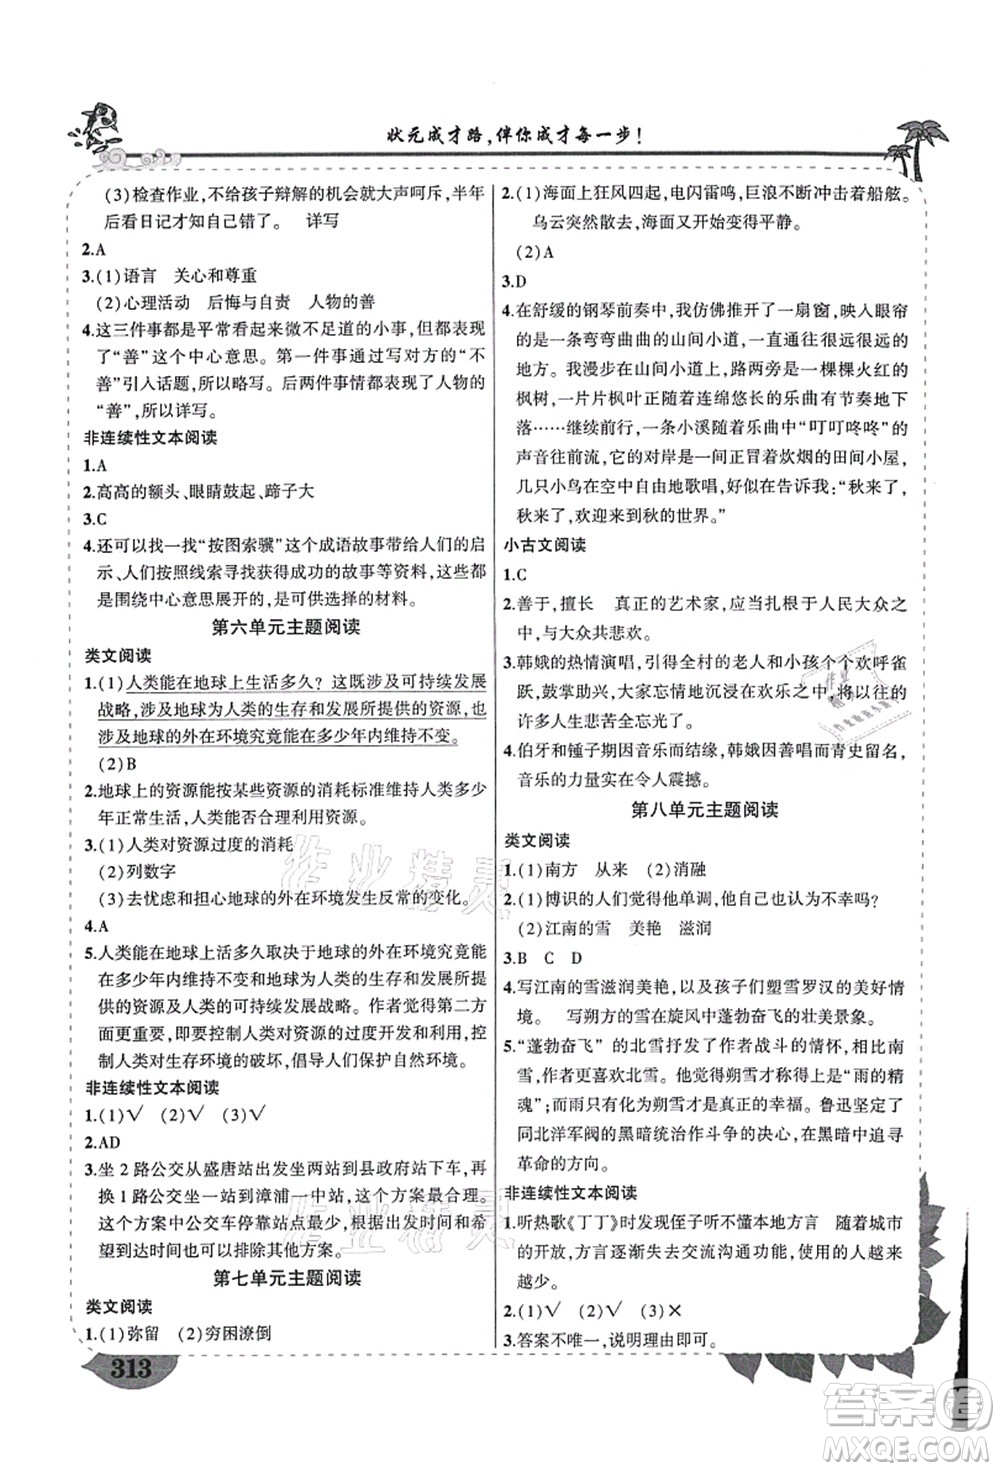 状元成才路,伴你成才每一步!
(3)检查作业,不给孩子辩解的机会就大声呵斥,半年
后看日记才知自己错了。 详写
2.A
3.(1)语言 关心和尊重
(2)心理活动 后悔与自责 人物的善
4.这三件事都是平常看起来微不足道的小事,但都反映
了“善”这个中心意思。第一件事通过写对方的“不
善”引入话题,所以略写。后两件事情都表现了人物的
“善”,所以详写。
非连续性文本阅读
1.A
2.高高的额头、眼睛鼓起、蹄子大
3.C
4.还可以找一找“按图索骥”这个成语故事带给人们的启
示、人们按照线索寻找获得成功的故事等资料,这些都
是围绕中心意思展开的,是可供选择的材料。
第六单元主题阅读
类文阅读
1.(1)人类能在地球上生活多久?这既涉及可持续发展
战略,涉及地球为人类的生存和发展所提供的资源,也
涉及地球的外在环境究竟能在多少年内维持不变。
(2)B
2.地球上的资源能按某些资源的消耗标准维持人类多少
年正常生活,人类能否合理利用资源。
3.(1)人类对资源过度的消耗
(2)列数字
(3)去忧虑和担心地球的外在环境发生反常的变化。
4.A
5.人类能在地球上活多久取决于地球的外在环境究竟能
在多少年内维持不变和地球为人类的生存和发展所提
供的资源及人类的可持续发展战略。作者觉得第二方
面更重要,即要控制人类对资源的过度开发和利用,要
控制人类对生存环境的破坏,倡导人们保护自然环境。
非连续性文本阅读
1.(1)√ (2)√ (3)√
2.AD
3.坐2路公交从盛唐站出发坐两站到县政府站下车,再
换1路公交坐一站到漳浦一中站,这个方案最合理。
这个方案中公交车停靠站点最少,根据出发时间和希
望到达时间也可以排除其他方案。
第七单元主题阅读
类文阅读
1.(1)弥留 (2)穷困潦倒
313
2.(1)海面上狂风四起,电闪雷鸣,巨浪不断冲击着船舷。
乌云散去,海面上开始变得平静。
(2)A
3.D
4.在舒缓的钢琴前奏中,我仿佛推开了一扇窗,映入眼帘
的是一条弯弯曲曲的山间小道,一直通向很远很远的
地方。我漫步在山间小道,路两旁是一棵棵火红的
枫树,一片片枫叶正随着连绵悠长的乐曲有节奏地下
落……继续前行,一条小溪随着乐曲中“叮叮咚咚”的
声音往前流,它的对岸是一间冒着炊烟的田间小屋,
几只小鸟在空中自由地歌唱,好似在告诉我:“秋来了,
秋来了,欢迎来到秋的世界。”
小古文阅读
1.C
2.善于,擅长 真正的艺术家,应当扎根于人民大众之
中,与大众共悲欢。
3.韩娥的热情演唱,引得全村的老人和小孩个个欢呼雀
跃,鼓掌助兴,大家忘情地沉浸在欢乐之中,将以往的
许多人生悲苦全忘光了。
4.伯牙和锺子期因音乐而结缘,韩娥因善唱而青史留名,
音乐的力量实在令人震撼。
第八单元主题阅读
类文阅读
1.(1)南方 从来 (2)消融
2.(1)博识的人们觉得他单调,他自己也以为不幸否耶?
(2)江南的雪 美艳 滋润
3.B C D
4.写江南的雪滋润美艳,以及孩子们塑雪罗汉的美好情
境。 写朔方的雪在旋风中蓬勃奋飞的壮美景象。
5.“蓬勃奋飞”的北雪抒发了作者战斗的情怀,相比江南
雪,作者更喜欢北雪。他觉得朔雪才称得上是“雨的精
魂”;而只有化为朔雪才是真正的幸福。鲁迅坚定了
同北洋军阀的黑暗统治作斗争的决心,在黑暗中追寻
革命的方向。
非连续性文本阅读
1.听热歌《丁丁》时发现侄子听不懂本地方言 随着城市
的开放,方言逐渐失去交流沟通功能,使用的人越来
越少。
2.(1)√ (2)√ (3)×
3.答案不唯一,说明理由即可。
作业精灵
作业精灵
答案圈
MXQE.COM